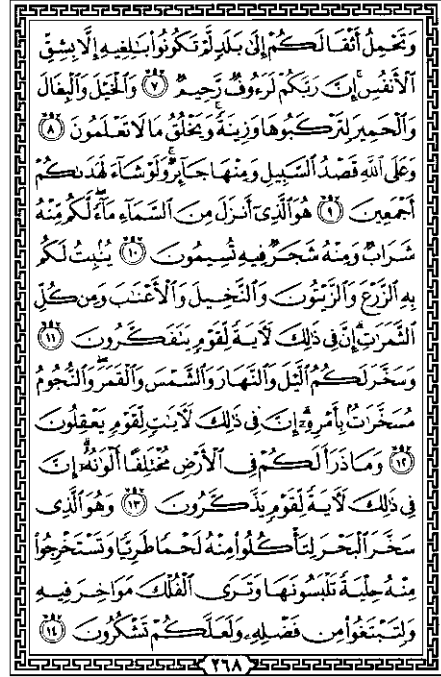 وَتَحْمِلُ أَثْقَالَكُمْ إِلَىٰ بَلَدٍ لَّمْ تَكُونُوا۟ بَـٰلِغِيهِ إِلَّا بِشِقِّ
ٱلْأَنفُسِ ۚ إِنَّ رَبَّكُمْ لَرَءُوفٌ رَّحِيمٌ ٧ وَٱلْخَيْلَ وَٱلْبِغَالَ
وَٱلْحَمِيرَ لِتَرْكَبُوهَا وَزِينَةً ۚ وَيَخْلُقُ مَا لَا تَعْلَمُونَ ٨
وَعَلَى ٱللَّهِ قَصْدُ ٱلسَّبِيلِ وَمِنْهَا جَآئِرٌ ۚ وَلَوْ شَآءَ لَهَدَىٰكُمْ
أَجْمَعِينَ ٩ هُوَ ٱلَّذِىٓ أَنزَلَ مِنَ ٱلسَّمَآءِ مَآءً ۖ لَّكُم مِّنْهُ
شَرَابٌ وَمِنْهُ شَجَرٌ فِيهِ تُسِيمُونَ ١٠ يُنۢبِتُ لَكُم
بِهِ ٱلزَّرْعَ وَٱلزَّيْتُونَ وَٱلنَّخِيلَ وَٱلْأَعْنَـٰبَ وَمِن كُلِّ
ٱلثَّمَرَٰتِ ۗ إِنَّ فِى ذَٰلِكَ لَـَٔايَةً لِّقَوْمٍ يَتَفَكَّرُونَ ١١
وَسَخَّرَ لَكُمُ ٱلَّيْلَ وَٱلنَّهَارَ وَٱلشَّمْسَ وَٱلْقَمَرَ ۖ وَٱلنُّجُومُ
مُسَخَّرَٰتٌۢ بِأَمْرِهِۦٓ ۗ إِنَّ فِى ذَٰلِكَ لَـَٔايَـٰتٍ لِّقَوْمٍ يَعْقِلُونَ
١٢ وَمَا ذَرَأَ لَكُمْ فِى ٱلْأَرْضِ مُخْتَلِفًا أَلْوَٰنُهُۥٓ ۗ إِنَّ
فِى ذَٰلِكَ لَـَٔايَةً لِّقَوْمٍ يَذَّكَّرُونَ ١٣ وَهُوَ ٱلَّذِى
سَخَّرَ ٱلْبَحْرَ لِتَأْكُلُوا۟ مِنْهُ لَحْمًا طَرِيًّا وَتَسْتَخْرِجُوا۟
مِنْهُ حِلْيَةً تَلْبَسُونَهَا وَتَرَى ٱلْفُلْكَ مَوَاخِرَ فِيهِ
وَلِتَبْتَغُوا۟ مِن فَضْلِهِۦ وَلَعَلَّكُمْ تَشْكُرُونَ ١٤
٢٦٨